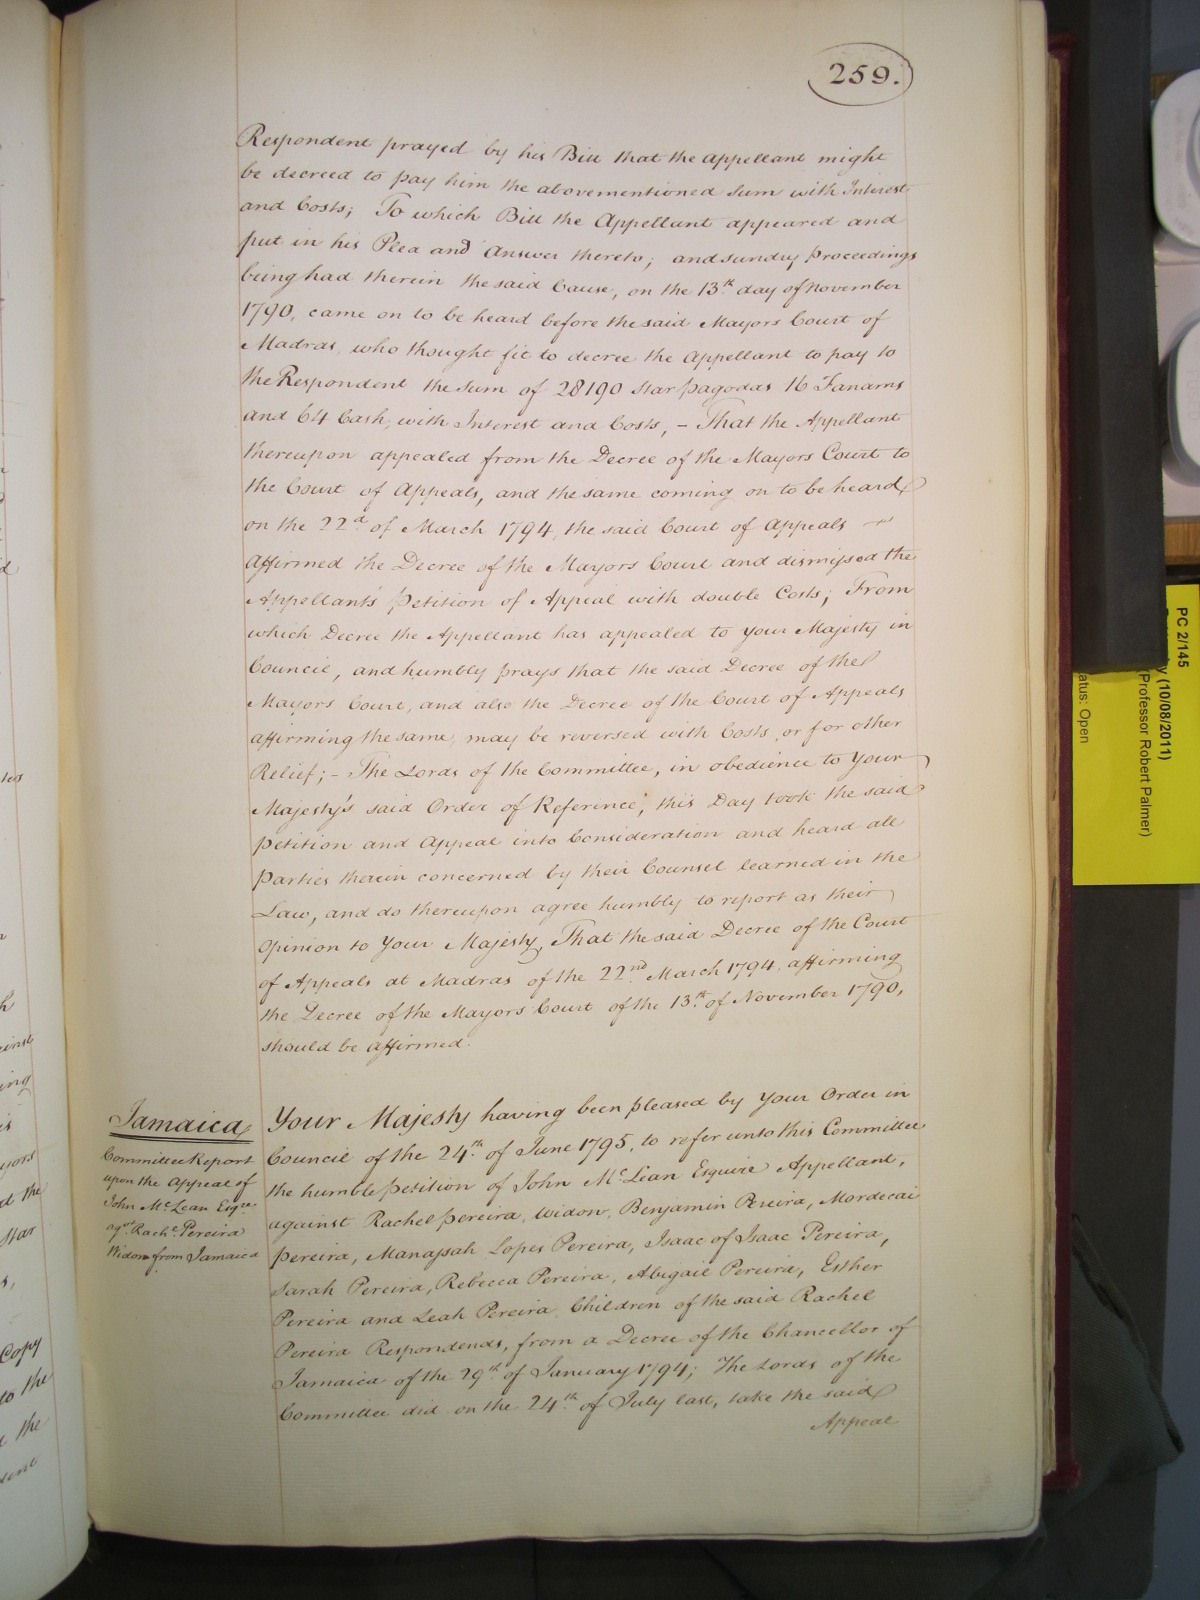 259.
Respondent prayed by his Bill that the Appellant might
be decreed to pay him the abovementioned Sum with Interest
and Costs; To which Bill the Appellant appeared and
put in his Plea and Answer thereto; and sundry Proceedings
being had therein the said Cause, on the 13th day of November
1790, came on to be heard before the said Mayors Court of
Madras, who thought fit to decree the Appellant to pay to
the Respondent the Sum of 28190 Star pagodas 16 Fanams
and 64 Cash, with Interest and Costs, – That the Appellant
thereupon appealed from the Decree of the Mayors Court to
the Court of Appeals, and the same coming on to be heard
on the 22d of March 1794, the said Court of Appeals
affirmed the Decree of the Mayors Court and dismissed the
Appellant's Petition of Appeal with double Costs; From
which Decree the Appellant has appealed to your Majesty in
Council, and humbly prays that the said Decree of the
Mayors Court, and also the Decree of the Court of Appeals
affirming the same, may be reversed with Costs, or for other
Relief; – The Lords of the Committee, in obedience to Your
Majesty's said Order of Reference, this Day took the said
Petition and Appeal into Consideration and heard all
Parties therein concerned by their Counsel learned in the
Law, and do thereupon agree humbly to report as their
Opinion to Your Majesty, That the said Decree of the Court
of Appeals at Madras of the 22nd March 1794, affirming
the Decree of the Mayors Court of the 13th of November 1790,
should be affirmed.
Jamaica
Committee Report
upon the Appeal of
John Mc Lean Esqre
agst Rachl Pereira
Widow from Jamaica
Your Majesty having been pleased by Your Order in
Council of the 24th of June 1795, to refer unto this Committee
the humble Petition of John Mc Lean Esquire Appellant,
against Rachel Pereira, Widow, Benjamin Pereira, Mordecai
Pereira, Manassah Lopes Pereira, Isaac of Isaac Pereira,
Sarah Pereira, Rebecca Pereira, Abigail Pereira, Esther
Pereira and Leah Pereira, Children of the said Rachel
Pereira Respondents, from a Decree of the Chancellor of
Jamaica of the 29th of January 1794; The Lords of the
Committee did on the 24th of July last, take the said
Appeal
PC 2/145
(10/08/2011)
(Professor Robert Palmer)
atus: Open